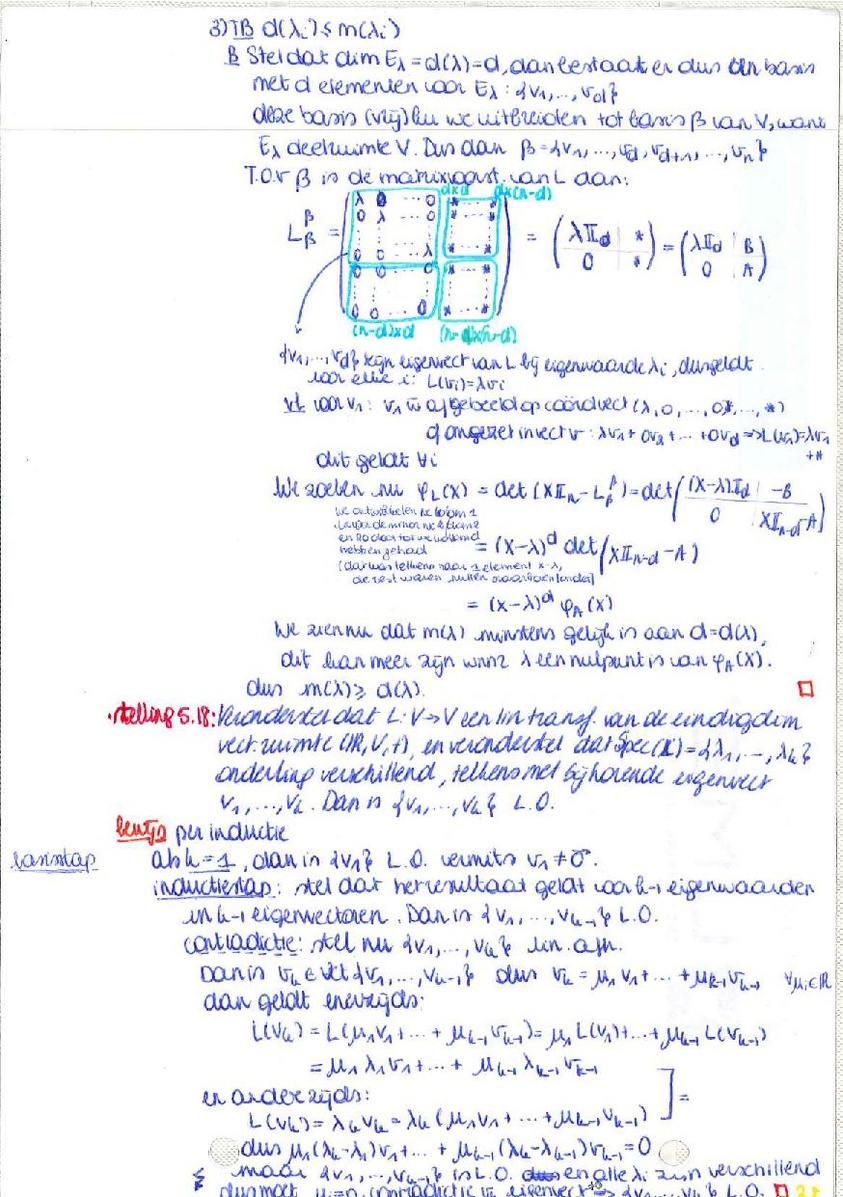 3) TB d(λi) ≤ m(λi)
B Stel dat dim Eλ = d(λ) = d, dan bestaat er dus een basis
met d elementen voor Eλ : {v1, ..., vd}
deze basis (vrij) kn we uitbreiden tot basis β van V, want
Eλ deelruimte V. Dus dan β = {v1, ..., vd, vd+1, ..., vn}
T.o.v β is de matrixvoorst. van L dan:
d×d d×(n-d)
L_β^β = ( λ 0 ... 0 * ... * ; 0 λ ... 0 * ... * ; 0 0 ... λ * ... * ; 0 0 ... 0 * ... * ; 0 0 ... 0 * ... * ) = ( λ𝕀d | * ; 0 | * ) = ( λ𝕀d | B ; 0 | A )
(n-d)×d (n-d)×(n-d)
{v1, ..., vd} zijn eigenvect van L bij eigenwaarde λi, dus geldt
voor elke i: L(vi) = λvi
vb voor v1: v1 w afgebeeld op coördvect (λ, 0, ..., 0*, ..., *)
omgezet in vect v: λv1 + 0v2 + ... + 0vd => L(v1) = λv1
+*
dit geldt ∀i
We zoeken nu φL(X) = det (X𝕀n - L_β^β) = det ( (X-λ)𝕀d | -B ; 0 | X𝕀n-d - A )
we ontwikkelen nr kolom 1
daarna de minor nr kolom 2
en zo door tot we kolom d
hebben gehad
(daar was telkens maar 1 element x-λ,
de rest waren nullen
= (X-λ)^d det (X𝕀n-d - A)
= (X-λ)^d φA(X)
We zien nu dat m(λ) minstens gelijk is aan d = d(λ),
dit kan meer zijn wnr λ een nulpunt is van φA(X).
dus m(λ) ≥ d(λ). □
• stelling 5.18: Veronderstel dat L: V → V een lin transf. van de eindigdim
vect. ruimte (ℝ, V, +), en veronderstel dat Spec(L) = {λ1, ..., λk}
onderling verschillend, telkens met bijhorende eigenvect
v1, ..., vk. Dan is {v1, ..., vk} L.O.
bewijs per inductie
basisstap als k = 1, dan is {v1} L.O. vermits v1 ≠ o.
inductiestap: stel dat het resultaat geldt voor k-1 eigenwaarden
en k-1 eigenvectoren. Dan is {v1, ..., vk-1} L.O.
contradictie: stel nu {v1, ..., vk} lin. afh.
Dan is vk ∈ vct{v1, ..., vk-1} dus vk = μ1v1 + ... + μk-1vk-1 ∀μi∈ℝ
dan geldt enerzijds:
L(vk) = L(μ1v1 + ... + μk-1vk-1) = μ1L(v1) + ... + μk-1L(vk-1)
= μ1λ1v1 + ... + μk-1λk-1vk-1
en anderzijds: ] =
L(vk) = λkvk = λk(μ1v1 + ... + μk-1vk-1)
dus μ1(λk-λ1)v1 + ... + μk-1(λk-λk-1)vk-1 = 0
maar {v1, ..., vk-1} is L.O. en alle λi zijn verschillend
dus moet μi = 0, contradictie eigenvect => {v1, ..., vk} L.O. □